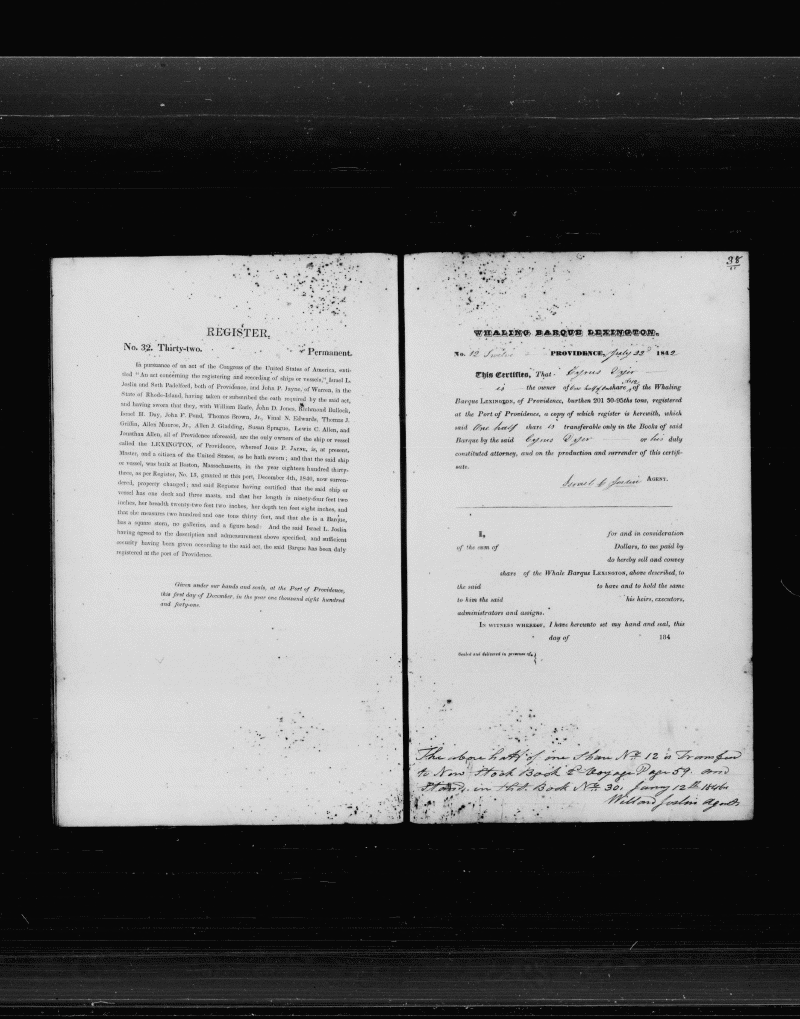 REGISTER,
No. 32. Thirty-two. Permanent.
In pursuance of an act of the Congress of the United States of America, enti-
tled "An act concerning the registering and recording of ships or vessels," Israel L.
Joslin and Seth Padelford, both of Providence, and John P. Jayne, of Warren, in the
State of Rhode-Island, having taken or subscribed the oath required by the said act,
and having sworn that they, with William Earle, John D. Jones, Richmond Bullock,
Israel H. Day, John F. Pond, Thomas Brown, Jr., Vinal N. Edwards, Thomas J.
Griffin, Allen Munroe, Jr., Allen J. Gladding, Susan Sprague, Lewis C. Allen, and
Jonathan Allen, all of Providence aforesaid, are the only owners of the ship or vessel
called the LEXINGTON, of Providence, whereof JOHN P. JAYNE, is, at present,
Master, and a citizen of the United States, as he hath sworn; and that the said ship
or vessel, was built at Boston, Massachusetts, in the year eighteen hundred thirty-
three, as per Register, No. 13, granted at this port, December 4th, 1840, now surren-
dered, property changed; and said Register having certified that the said ship or
vessel has one deck and three masts, and that her length is ninety-four feet two
inches, her breadth twenty-two feet two inches, her depth ten feet eight inches, and
that she measures two hundred and one tons thirty feet, and that she is a Barque,
has a square stern, no galleries, and a figure head: And the said Israel L. Joslin
having agreed to the description and admeasurement above specified, and sufficient
security having been given according to the said act, the said Barque has been duly
registered at the port of Providence.
Given under our hands and seals, at the Port of Providence,
this first day of December, in the year one thousand eight hundred
and forty-one.
38
WHALING BARQUE LEXINGTON.
No. 12 PROVIDENCE, July 22d 1842
This Certifies, That Cyrus Dyer
is the owner of one half of one share No 12 of the Whaling
Barque LEXINGTON, of Providence, burthen 201 50-95ths tons, registered
at the Port of Providence, a copy of which register is herewith, which
said One half share is transferable only in the Books of said
Barque by the said Cyrus Dyer or his duly
constituted attorney, and on the production and surrender of this certifi-
cate.
Israel L Joslin AGENT.
I, for and in consideration
of the sum of Dollars, to me paid by
do hereby sell and convey
share of the Whale Barque LEXINGTON, above described, to
the said to have and to hold the same
to him the said his heirs, executors,
administrators and assigns.
IN WITNESS WHEREOF, I have hereunto set my hand and seal, this
day of 184
Sealed and delivered in presence of,}
The above half of one Share No. 12 is Transfer
to New Stock Book 2d Voyage Page 59. and
Stands in that Book No. 30. Janry 12th 1846
Willard Joslin Agent.